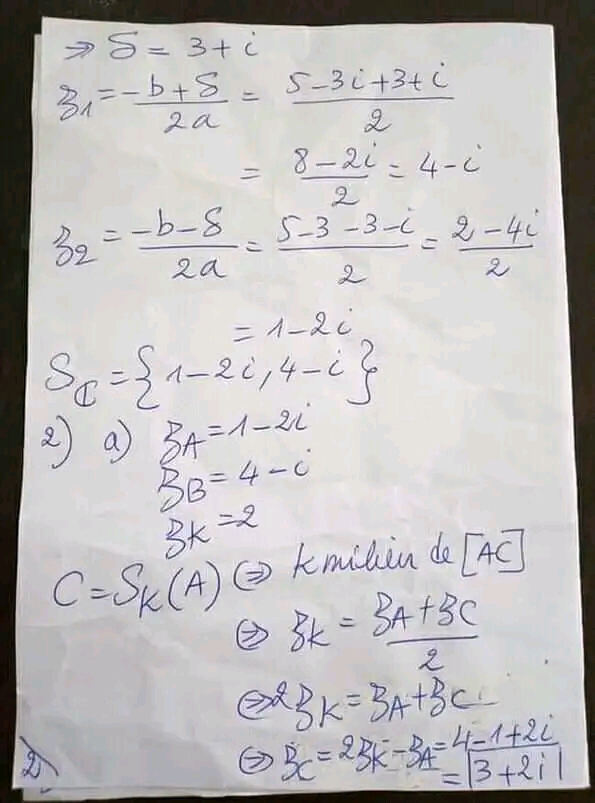 ⇒ δ = 3 + i
z1 = (-b + δ)/2a = (5 - 3i + 3 + i)/2
= (8 - 2i)/2 = 4 - i
z2 = (-b - δ)/2a = (5 - 3 - 3 - i)/2 = (2 - 4i)/2
= 1 - 2i
Sℂ = {1 - 2i, 4 - i}
2) a) zA = 1 - 2i
zB = 4 - i
zK = 2
C = SK(A) ⇔ K milieu de [AC]
⇔ zK = (zA + zC)/2
⇔ 2zK = zA + zC
⇔ zC = 2zK - zA = 4 - 1 + 2i
= |3 + 2i|
2